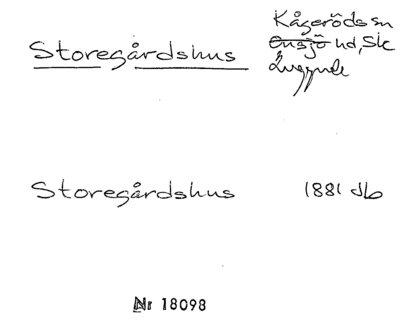 Kågeröds sn
Storegårdshus
Onsjö hd, Sk
Luggude
Storegårdshus 1881 Jb
Nr 18098